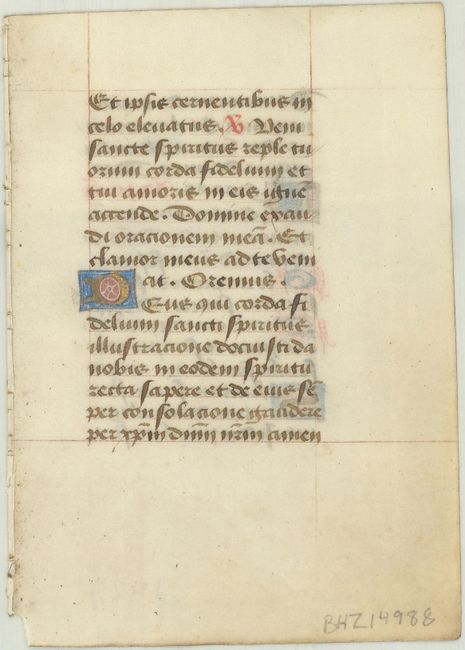 Et ipsis cernentibus in
celo elevatus. V Veni
sancte spiritus reple tu
orum corda fidelium et
tui amoris in eis igne
accende. Domine exau
di oracionem meā. Et
clamor meus ad te veni
at. Oremus.
Deus qui corda fi
delium sancti spiritus
illustracione docuisti da
nobis in eodem spiritu
recta sapere et de eius sē
per consolacione gaudere
per xp̄m dn̄m nr̄m amen
BHZ14988